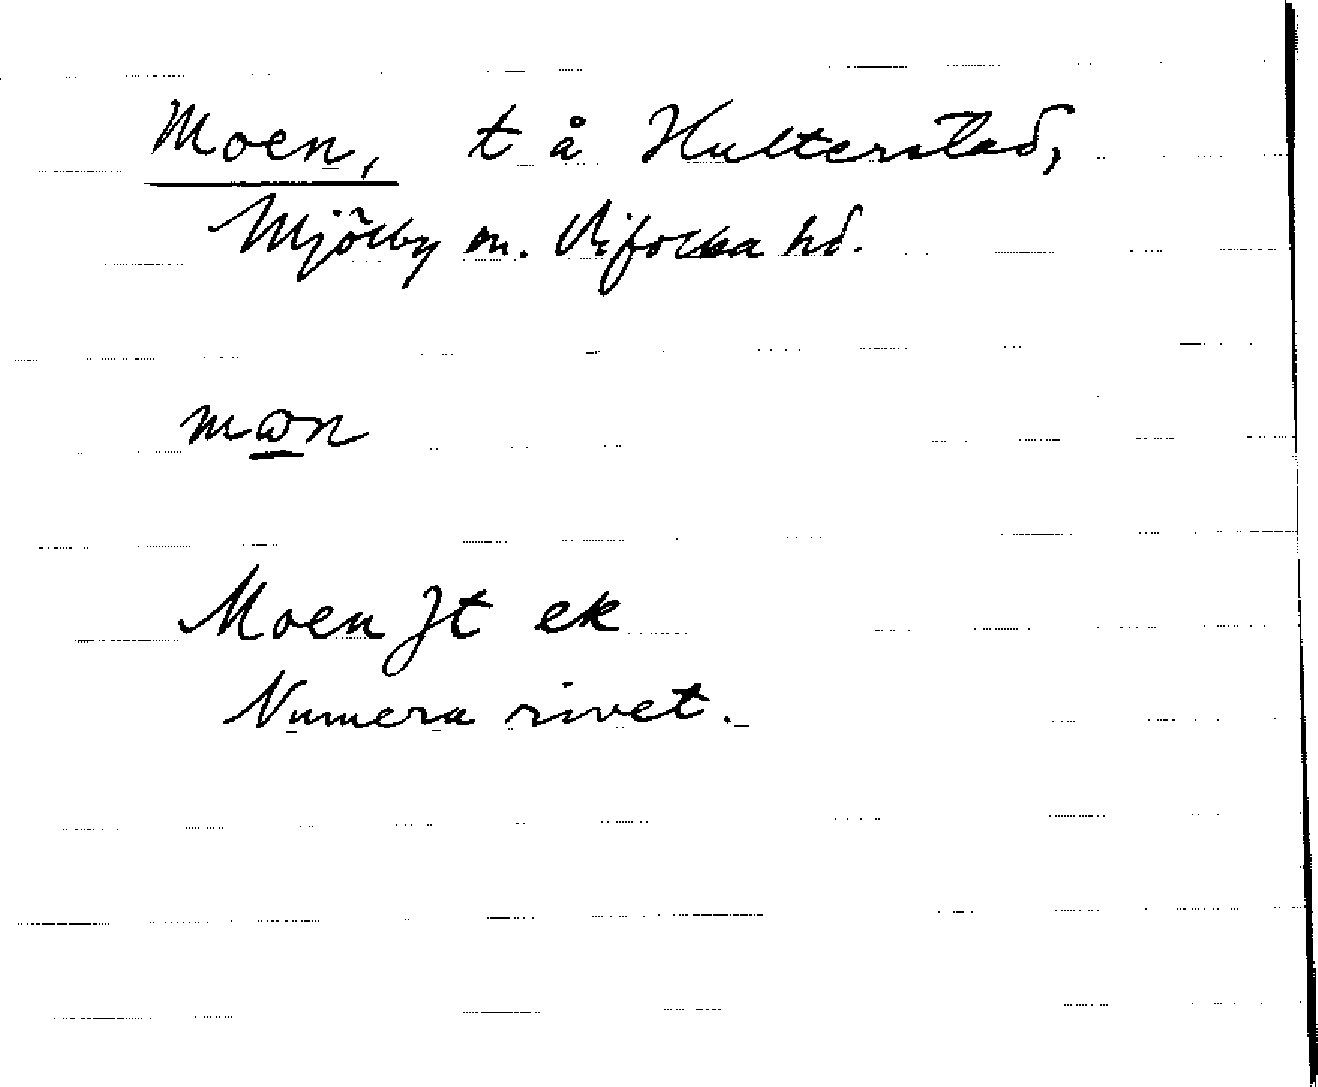 Moen, t å Hulterstad,
Mjölby sn. Vifolka hd.
mωn
Moen Jt ek
Numera rivet.